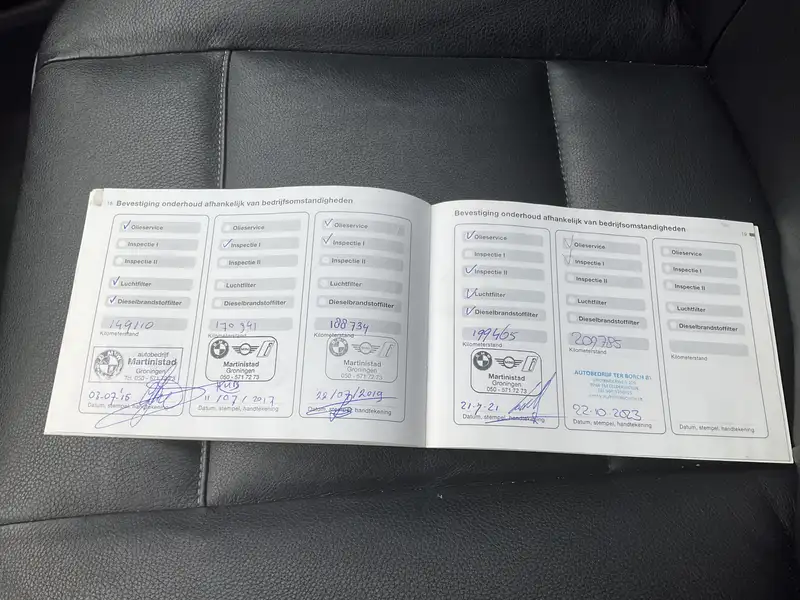 16 Bevestiging onderhoud afhankelijk van bedrijfsomstandigheden
Olieservice
Inspectie I
Inspectie II
Luchtfilter
Dieselbrandstoffilter
149110
Kilometerstand
autobedrijf
Martinistad
Groningen
Tel. 050 - 571 72 73
07.07.'15
Datum, stempel, handtekening
Olieservice
Inspectie I
Inspectie II
Luchtfilter
Dieselbrandstoffilter
170 941
Kilometerstand
Martinistad
Groningen
050 - 571 72 73
11/07/2017
Datum, stempel, handtekening
Olieservice
Inspectie I
Inspectie II
Luchtfilter
Dieselbrandstoffilter
188734
Kilometerstand
Martinistad
Groningen
050 - 571 72 73
22/07/2019
Datum, stempel, handtekening
Bevestiging onderhoud afhankelijk van bedrijfsomstandigheden
Olieservice
Inspectie I
Inspectie II
Luchtfilter
Dieselbrandstoffilter
199465
Kilometerstand
Martinistad
Groningen
050 - 571 72 73
21-7-21
Datum, stempel, handtekening
Olieservice
Inspectie I
Inspectie II
Luchtfilter
Dieselbrandstoffilter
209785
Kilometerstand
AUTOBEDRIJF TER BORCH BV
22-10-2023
Datum, stempel, handtekening
Olieservice
Inspectie I
Inspectie II
Luchtfilter
Dieselbrandstoffilter
Kilometerstand
Datum, stempel, handtekening